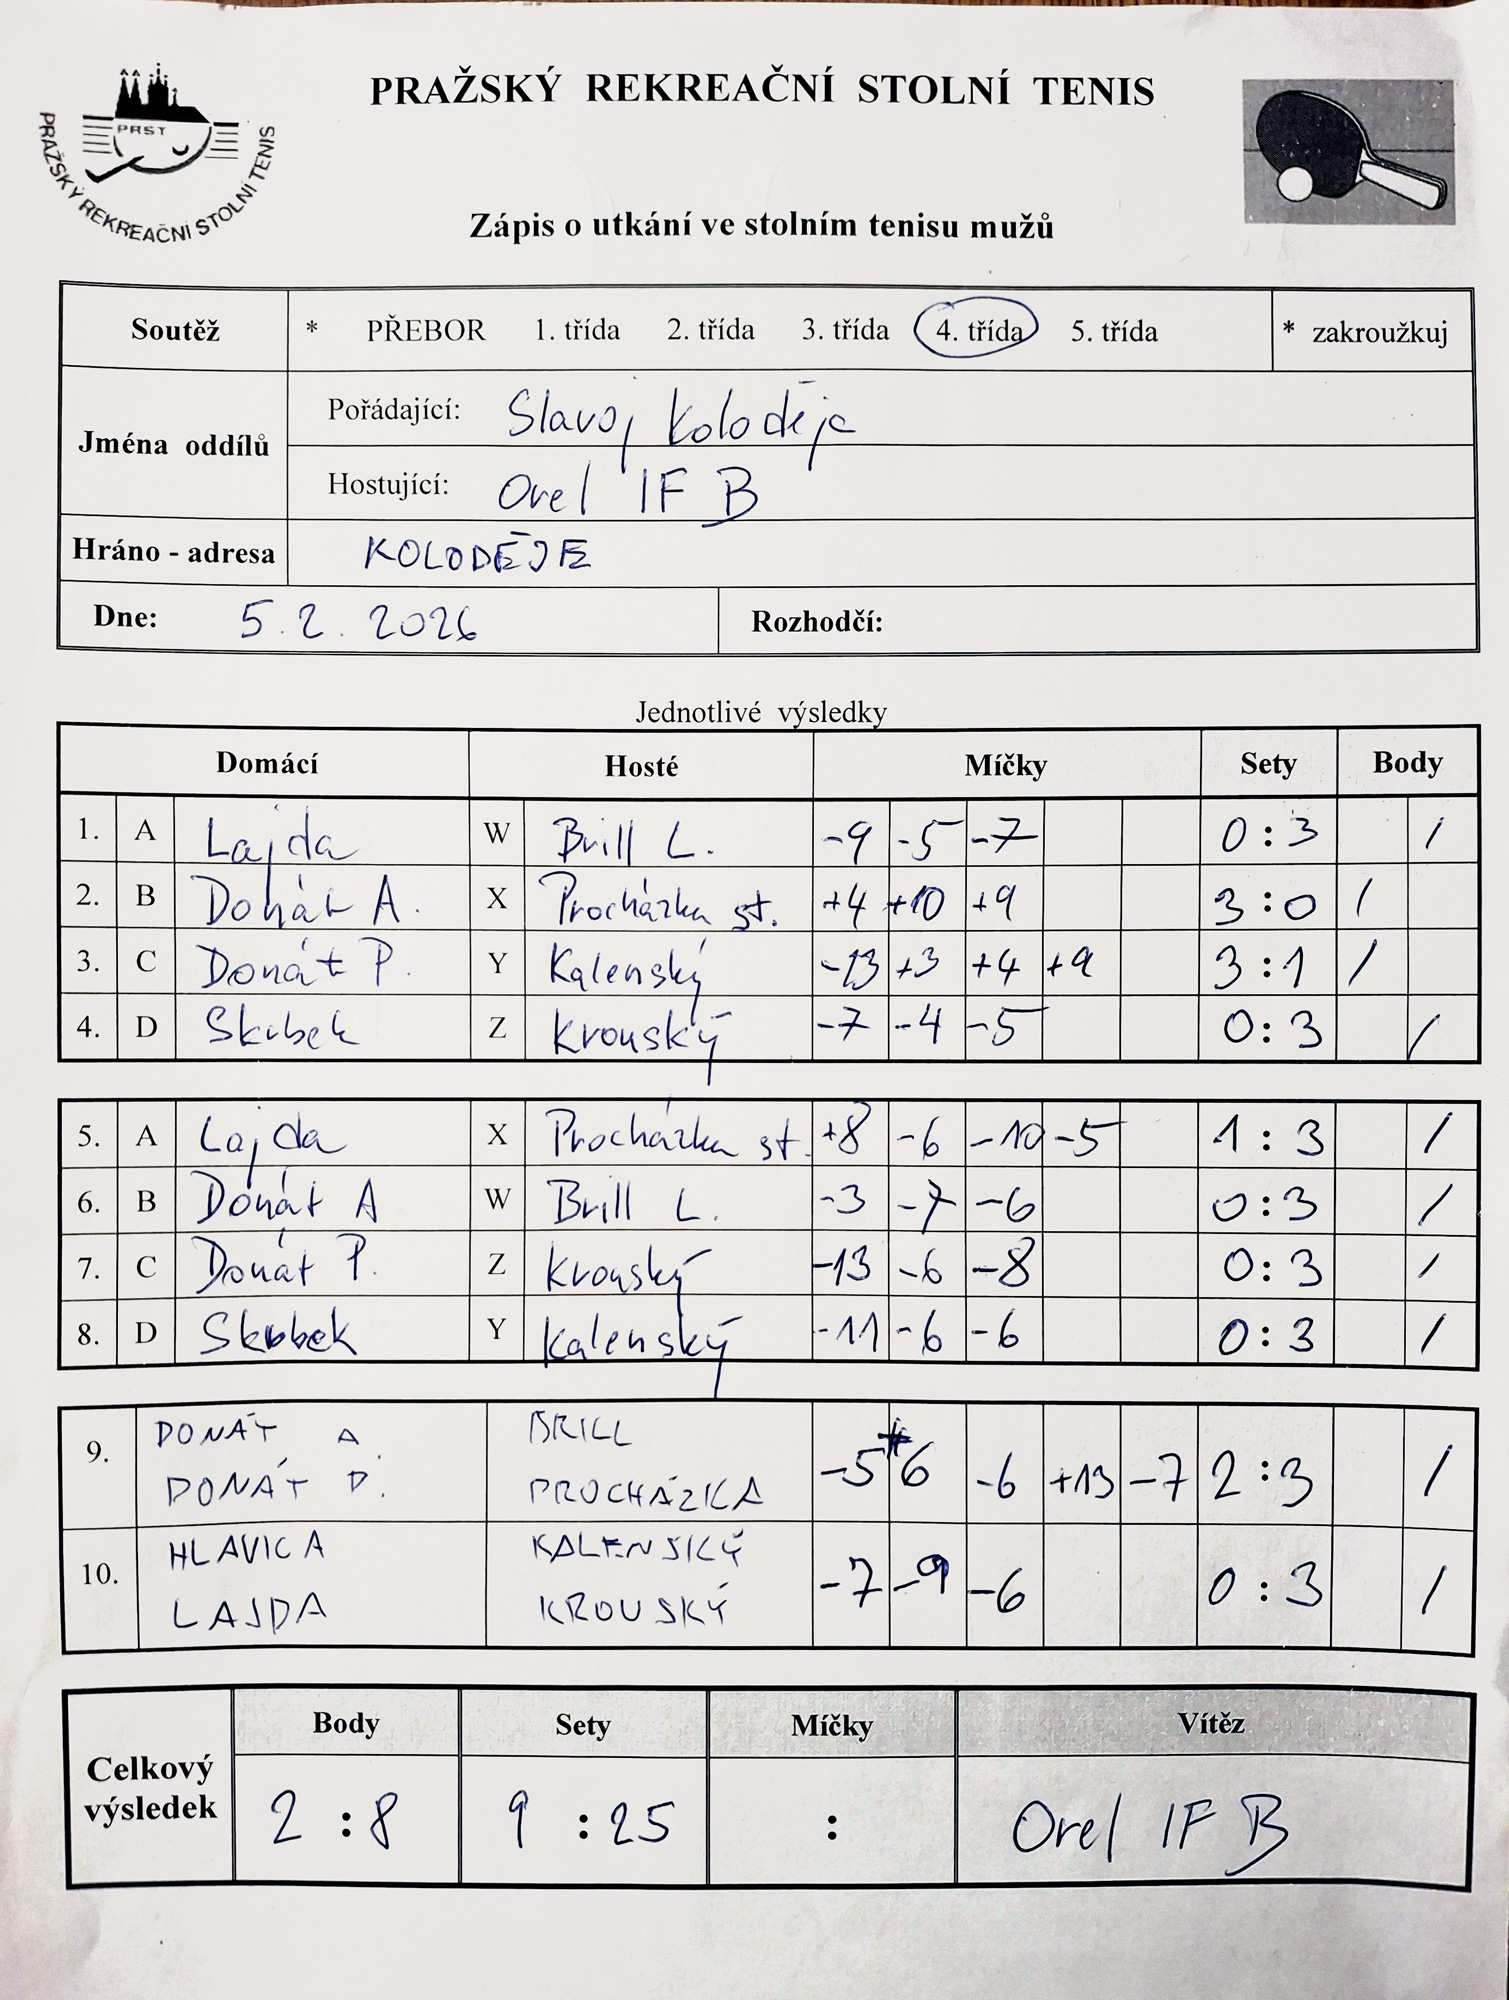 PRAŽSKÝ REKREAČNÍ STOLNÍ TENIS
PRST
PRAŽSKÝ REKREAČNÍ STOLNÍ TENIS
Zápis o utkání ve stolním tenisu mužů
Soutěž * PŘEBOR 1. třída 2. třída 3. třída 4. třída 5. třída * zakroužkuj
Jména oddílů
Pořádající: Slavoj Koloděje
Hostující: Orel IF B
Hráno - adresa KOLODĚJE
Dne: 5.2.2026 Rozhodčí:
Jednotlivé výsledky
Domácí Hosté Míčky Sety Body
1. A Lajda W Brill L. -9 -5 -7 0:3 /
2. B Donát A. X Procházka st. +4 +10 +9 3:0 /
3. C Donát P. Y Kalenský -13 +3 +4 +9 3:1 /
4. D Skubek Z Krouský -7 -4 -5 0:3 /
5. A Lajda X Procházka st. +8 -6 -10 -5 1:3 /
6. B Donát A W Brill L. -3 -7 -6 0:3 /
7. C Donát P. Z Krouský -13 -6 -8 0:3 /
8. D Skubek Y Kalenský -11 -6 -6 0:3 /
9. DONÁT A. BRILL
DONÁT P. PROCHÁZKA -5 +6 -6 +13 -7 2:3 /
10. HLAVICA KALENSKÝ
LAJDA KROUSKÝ -7 -9 -6 0:3 /
Celkový výsledek
Body Sety Míčky Vítěz
2:8 9:25 : Orel IF B